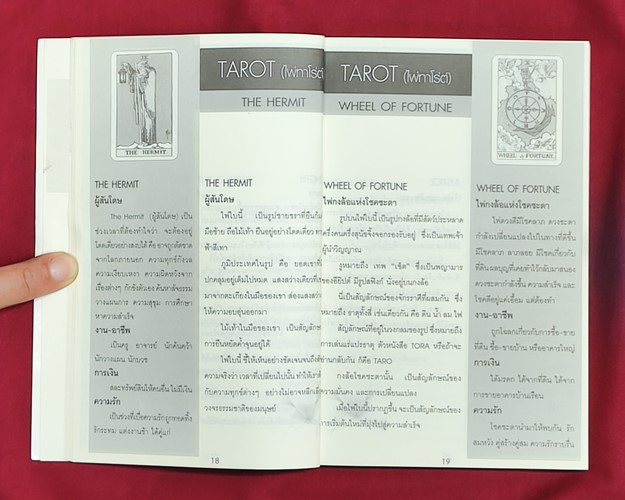 THE HERMIT
THE HERMIT
ผู้สันโดษ
The Hermit (ผู้สันโดษ) เป็น
ช่วงเวลาที่ต้องทำใจว่า จะต้องอยู่
โดดเดี่ยวอย่างสงบได้ คือ อาจถูกตัดขาด
จากโลกภายนอก ความทุกข์กังวล
ความเงียบเหงา ความผิดหวังจาก
เรื่องต่างๆ กักขังตัวเอง ค้นหาสัจธรรม
วางแผนการ ความสุขุม การศึกษา
หาความสำเร็จ
งาน-อาชีพ
เป็นครู อาจารย์ นักค้นคว้า
นักวางแผน นักบวช
การเงิน
สละทรัพย์สินให้คนอื่น ไม่มีเงิน
ความรัก
เป็นช่วงที่เบื่อความรักถูกทอดทิ้ง
รักระทม แต่งงานช้า ได้คู่แก่
TAROT (ไพ่ทาโร่ต์
THE HERMIT
THE HERMIT
ผู้สันโดษ
ไพ่ใบนี้ เป็นรูปชายชราที่ยืน
มือซ้าย ถือไม้เท้า ยืนอยู่อย่างโดดเดี่ยว
ฟ้าสีเทา
ภูมิประเทศในรูป คือ ยอดเขาที่
ปกคลุมอยู่เต็มไปหมด แสงสว่างเดียวที่
มาจากตะเกียงในมือของเขา ส่องแสงสว่าง
ให้ความอบอุ่นออกมา
ไม้เท้าในมือของเขา เป็นสัญลักษ
การยืนหยัดค้ำจุนอยู่ได้
ไพ่ใบนี้ ชี้ให้เห็นอย่างชัดเจนจนถึง
ความจริงว่า เวลาที่เปลี่ยนไปนั้น ทำให้เรา
กับความทุกข์ต่างๆ อย่างไม่อาจหลีก
วงจรธรรมชาติของมนุษย์
18
TAROT (ไพ่ทาโร่ต์)
WHEEL OF FORTUNE
WHEEL OF FORTUNE
ไพ่กงล้อแห่งโชคชะตา
รูปบนไพ่ใบนี้ เป็นรูปกงล้อที่มีสัตว์ประหลาด
ครึ่งคนครึ่งสุนัขจิ้งจอกรองรับอยู่ ซึ่งเป็นเทพเจ้า
ผู้นำวิญญาณ
งูหมายถึง เทพ "เซ็ต" ซึ่งเป็นพญามาร
ของอียิปต์ มีรูปสฟิงก์ นั่งอยู่บนกงล้อ
นี่เป็นสัญลักษณ์ของจักรราศีที่ผสมกัน ซึ่ง
หมายถึง ธาตุทั้งสี่ เช่นเดียวกัน คือ ดิน น้ำ ลม ไฟ
สัญลักษณ์ที่อยู่ในวงกลมของรูป ซึ่งหมายถึง
การเล่นแร่แปรธาตุ ตัวหนังสือ TORA หรือถ้าจะ
อ่านกลับกัน ก็คือ TARO
กงล้อโชคชะตานั้น เป็นสัญลักษณ์ของ
ความมั่นคง และการเปลี่ยนแปลง
เมื่อไพ่ใบนี้ปรากฏขึ้น จะเป็นสัญลักษณ์ของ
การเริ่มต้นใหม่ที่มุ่งไปสู่ความสำเร็จ
19
WHEEL of FORTUNE
WHEEL OF FORTUNE
ไพ่กงล้อแห่งโชคชะตา
ไพ่ดวงดีมีโชคลาภ ดวงชะตา
กำลังเปลี่ยนแปลงไปในทางที่ดีขึ้น
มีโชคลาภ ลาภลอย มีโชคเกี่ยวกับ
ที่ดิน ผลบุญที่เคยทำไว้กลับมาสนอง
ดวงชะตากำลังขึ้น ความสำเร็จ และ
โชคดีอยู่แค่เอื้อม แต่ต้องทำ
งาน-อาชีพ
ถูกโฉลกเกี่ยวกับการซื้อ-ขาย
ที่ดิน ซื้อ-ขายบ้าน หรืออาคารใหญ่
การเงิน
ได้มรดก ได้จากที่ดิน ได้จาก
การขายอาคารบ้านเรือน
ความรัก
โชคชะตานำมาให้พบกัน รัก
สมหวัง คู่สร้างคู่สม ความรักราบรื่น